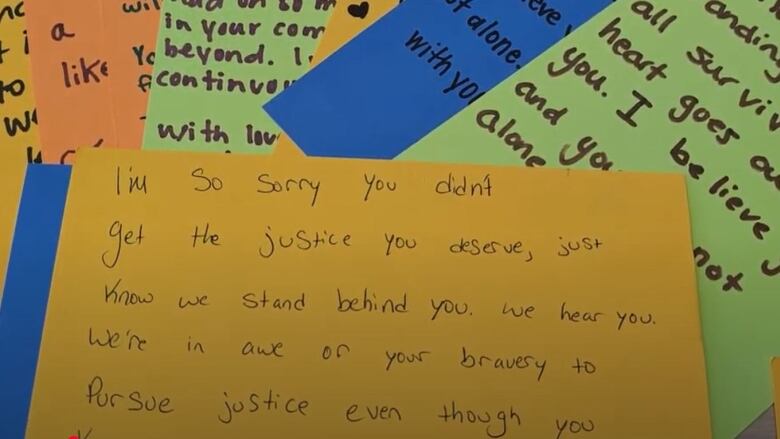 a
like
wil
in your com
beyond. I
continuou
with lov
t alone.
with you
believe
all surviv
heart goes ou
you. I believe
and you
alone
not
anding
I'm so sorry you didn't
get the justice you deserve, just
know we stand behind you. we hear you.
We're in awe or your bravery to
Pursue justice even though you